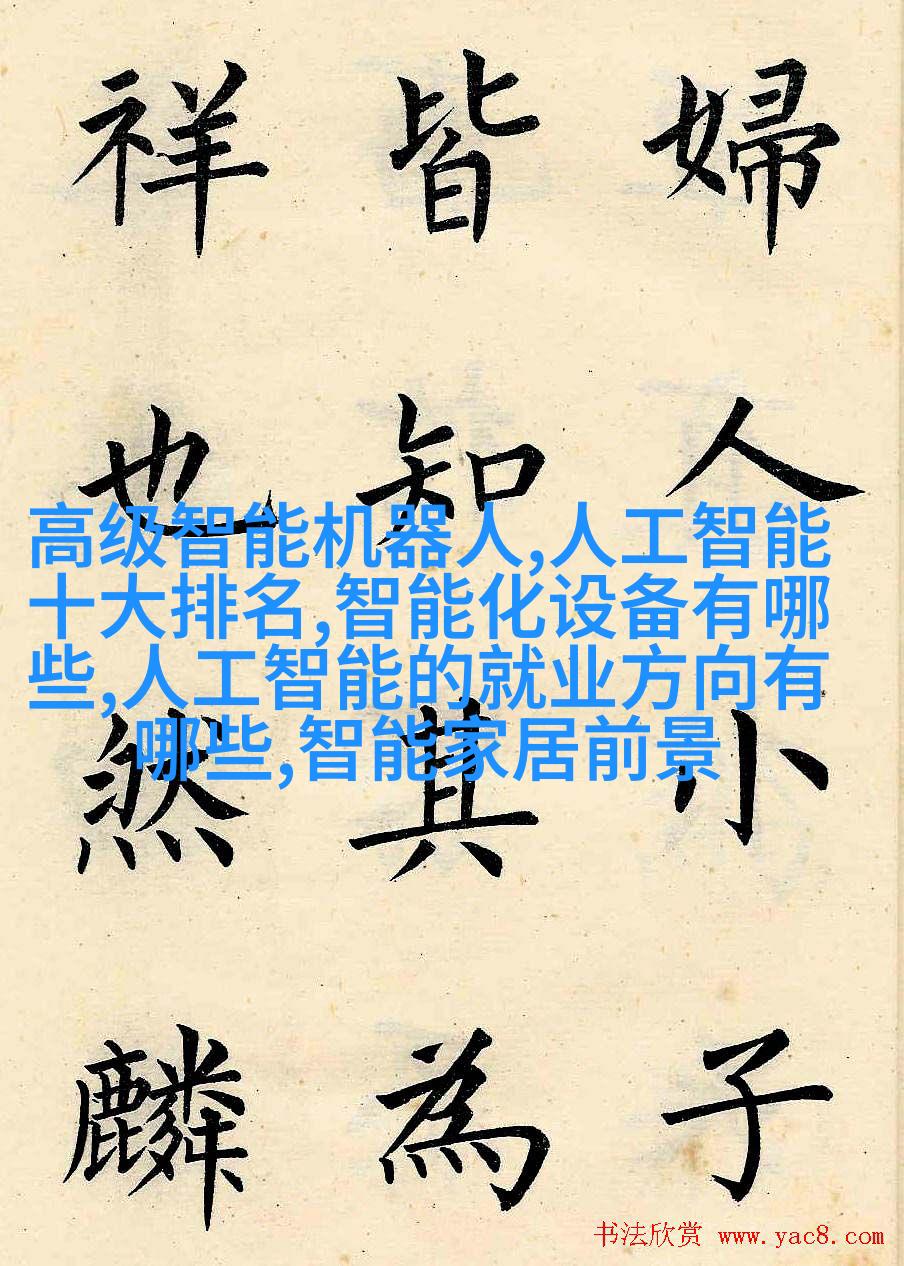 婦人小子
皆知其為
祥也然麟
高级智能机器人,人工智能
十大排名,智能化设备有哪
些,人工智能的就业方向有
哪些,智能家居前景
书法欣赏 www.yac8.com